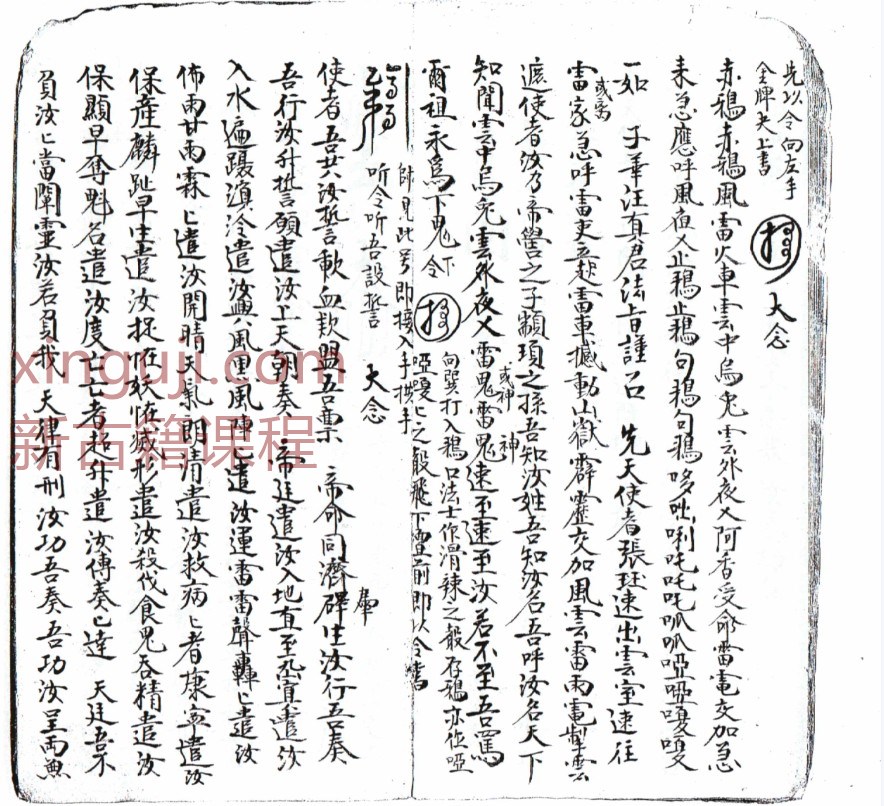 先以令向左手
金牌尖上書
大念
赤鴉赤鴉風雷火車雲中烏兔雲外夜乂阿香受命雷電交加急
來急應呼風夜乂止鴉止鴉句鴉句鴉哆咄唎吒吒吒呱呱啞啞嗄嗄
一如 子華汪真君法旨謹召 先天使者張珏速出雲室速往
或寄
雷家急呼雷吏立起雷車撼動山嶽霹靂交加風雲雷雨電掣雲
遮使者汝乃帝嚳之子顓頊之孫吾知汝姓吾知汝名吾呼汝名天下
知聞雲中烏兔雲外夜乂雷鬼雷鬼速至速至汝若不至吾罵
或神 神
爾祖永為下鬼
下令
向巽打入鴉口法士作滑辣之殸存鴉亦作啞
啞嗄匕之殸飛下壇前即以令書
師見此号即接入手拱手
听令听吾設誓 大念
使者吾共汝誓言歃血歃盟吾稟 帝命同濟群生汝行吾奏
吾行汝升誓願遣汝上天朝奏 帝廷遣汝入地直至 遣汝
入水遍躡 遣汝興風風陣匕遣汝運雷雷聲轟匕遣汝
佈雨甘雨霖匕遣汝開晴天氣朗清遣汝救病匕者康寧遣汝
保產麟趾早生遣汝捉怪妖怪滅形遣汝殺伐食鬼吞精遣汝
保顯早奪魁名遣汝度亡亡者超升遣汝傳奏匕達 天廷吾不
負汝匕當闡靈汝若負我 天律有刑汝功吾奏吾功汝呈兩無
xinguji.com
新古籍课程